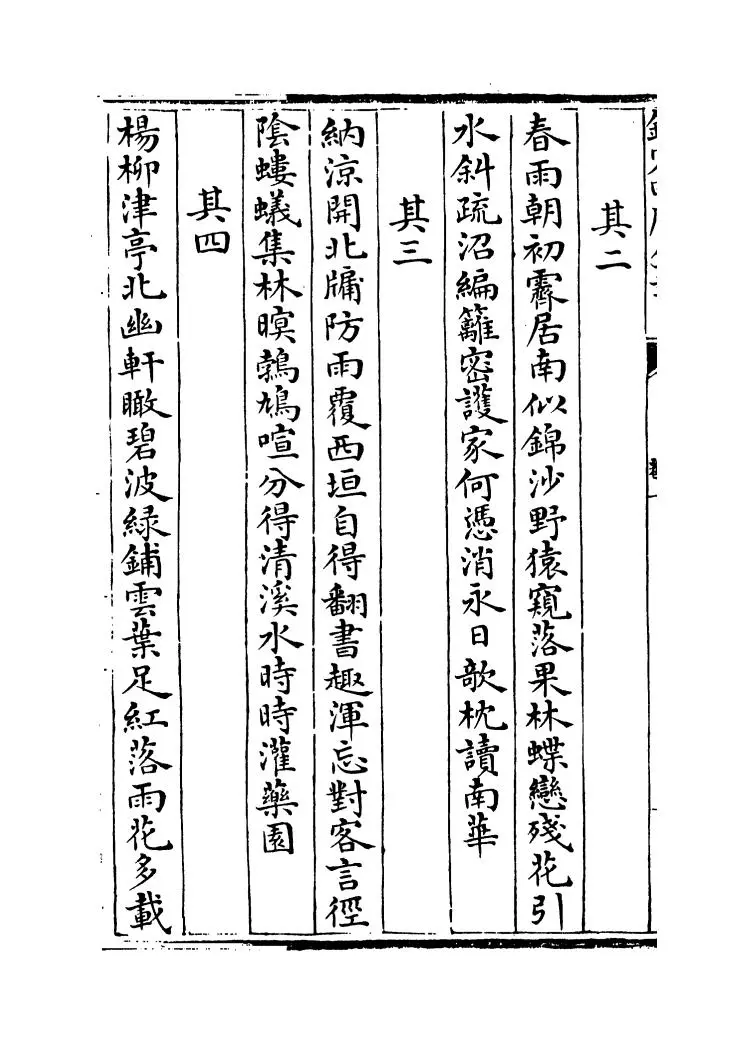 其二
春雨朝初霽居南似錦沙野猿窺落果林蝶戀殘花引
水斜疏沼編籬密護家何憑消永日欹枕讀南華
其三
納涼開北牖防雨覆西垣自得翻書趣渾忘對客言徑
陰螻蟻集林暝鵓鳩喧分得清溪水時時灌藥園
其四
楊柳津亭北幽軒瞰碧波綠鋪雲葉足紅落雨花多載